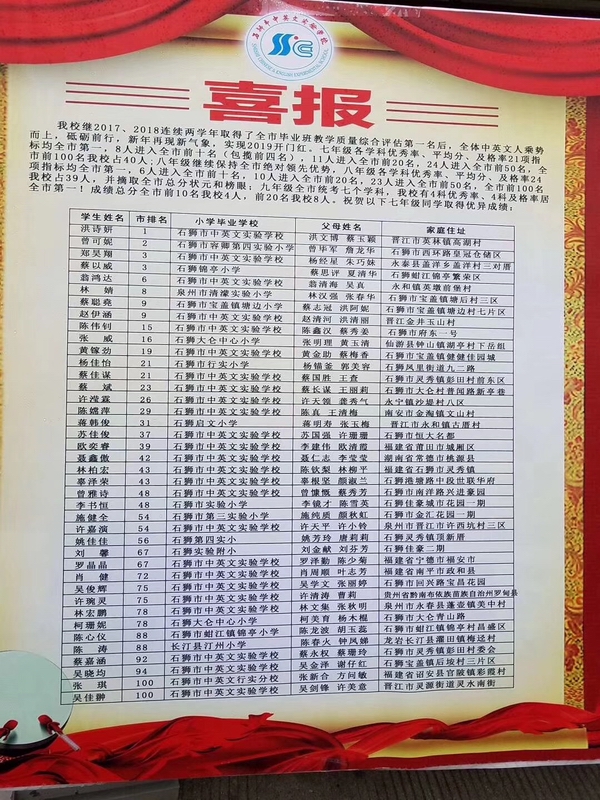 石狮市中英文实验学校
SHISHI CHINESE & ENGLISH EXPERIMENTAL SCHOOL
喜报
我校继2017、2018连续两学年取得了全市毕业班教学质量综合评估第一名后,全体中英文人乘势
而上,砥砺前行,新年再现新气象,实现2019开门红。七年级各学科优秀率、平均分、及格率21项指
标均全市第一,8人进入全市前十名(包揽前四名),11人进入全市前20名,24人进入全市前50名,全
市前100名我校占40人;八年级继续保持全市绝对领先优势,八年级各学科优秀率、平均分、及格率24
项指标均全市第一,6人进入全市前十名,10人进入全市前20名,23人进入全市前50名,全市前100名
我校占39人,并摘取全市总分状元和榜眼;九年级全市统考七个学科,我校有4科优秀率、4科及格率居
全市第一!成绩总分全市前10名我校4人,前20名我校8人。祝贺以下七年级同学取得优异成绩:
学生姓名 市排名 小学毕业学校 父母姓名 家庭住址
洪诗妍 1 石狮市中英文实验学校 洪文博 蔡玉颖 晋江市英林镇高湖村
曾可妮 2 石狮市容卿第四实验小学 曾毕军 詹龙华 石狮市西环路皇冠仓储区
郑昊翔 3 石狮市中英文实验学校 杨经星 朱巧妹 永泰县盖洋乡盖洋村三对厝
蔡以威 3 石狮锦亭小学 蔡思评 夏清华 石狮蚶江锦亭繁荣区
翁鸿达 6 石狮市中英文实验学校 翁清海 吴真 永和镇英墩前堡村
林婧 8 泉州市清濛实验小学 林汉强 张春华 石狮市宝盖镇塘后村三区
蔡聪尧 9 石狮市宝盖镇塘边小学 蔡志冠 洪阿妮 石狮市宝盖镇塘边村七片区
赵伊涵 9 石狮市中英文实验学校 赵清河 洪清丽 晋江金井玉山村
陈伟钊 15 石狮市中英文实验学校 陈鑫汉 蔡秀姜 石狮市府东一号
张威 16 石狮大仑中心小学 张明理 黄玉清 仙游县钟山镇湖亭村下岳组
黄镓劲 19 石狮市中英文实验学校 黄金助 蔡梅香 石狮市宝盖镇健健佳园城
杨佳怡 21 石狮市行实小学 杨锚銮 郭美容 石狮凤里街道九二路
蔡佳谋 21 石狮市中英文实验学校 蔡国胜 王查 石狮市灵秀镇彭田村前东区
蔡斌 23 石狮市中英文实验学校 蔡长谋 王丽莉 石狮市大仑村普阅路新亭巷
许滢霖 26 石狮市中英文实验学校 许天领 龚秀气 永宁镇沙堤村八区
陈嫦萍 29 石狮市中英文实验学校 陈真 王清梅 南安市金淘镇文山村
蒋韩俊 31 石狮启文小学 蒋明寿 张玉梅 晋江市永和镇古厝村
苏佳俊 37 石狮市中英文实验学校 苏国强 许珊珊 石狮市恒大名都
欧奕睿 39 石狮市中英文实验学校 李建伟 欧清霞 福建省莆田市城厢区
聂鑫傲 42 石狮市中英文实验学校 聂仁志 李莹莹 湖南省常德市桃源县
林柏宏 43 石狮市中英文实验学校 陈钦梨 林柳平 福建省石狮市灵秀镇
辜泽荣 43 石狮市中英文实验学校 辜根坚 颜淑兰 石狮港塘路中段世联华府
曾雅诗 48 石狮市中英文实验学校 曾慷慨 蔡秀芳 石狮市南洋路兴进豪园
李书恒 48 石狮市实验小学 李镜才 陈雪英 石狮佳豪城市花园一期
施健全 54 石狮市第三实验小学 施纯质 颜秋虹 石狮市金汇花园一期
许嘉演 54 石狮市中英文实验学校 许天平 许小铃 泉州市晋江市许西坑村三区
姚佳佳 56 石狮第四实小 姚芳玲 唐莉莉 石狮灵秀镇顶新厝
刘馨 67 石狮实验附小 刘金献 刘芬芳 石狮佳豪二期
罗晶晶 67 石狮市中英文实验学校 罗泽勤 陈少菊 福建省宁德市福安市
肖健 72 石狮市中英文实验学校 肖周顺 叶志芳 福建省南平市政和县
吴俊辉 75 石狮市中英文实验学校 吴学文 张丽婷 石狮市回兴路宝昌花园
许琬灵 75 石狮市中英文实验学校 许清涛 曹莉 贵州省黔南布依族苗族自治州罗甸县
林宏鹏 78 石狮市中英文实验学校 林文集 张秋明 泉州市永春县蓬壶镇美中村
柯珊妮 78 石狮大仑中心小学 柯美育 杨木棍 石狮市大仑青山路
陈心仪 88 石狮市蚶江镇锦亭小学 陈龙波 胡玉蕊 石狮市蚶江镇锦亭村昌盛区
陈涛 88 长汀县汀州小学 陈春火 钟凤娣 龙岩长汀县濯田镇梅迳村
蔡嘉涵 92 石狮市中英文实验学校 蔡永权 蔡珊玲 石狮市灵秀镇彭田村委会
吴晓均 94 石狮市中英文实验学校 吴金泽 谢仔红 石狮宝盖镇后垵村三片区
张琪 100 石狮市中英文行实分校 张新合 方问敏 福建省诏安县官陂镇彩霞村
吴佳翀 100 石狮市中英文实验学校 吴剑锋 许美意 晋江市灵源街道灵水南街